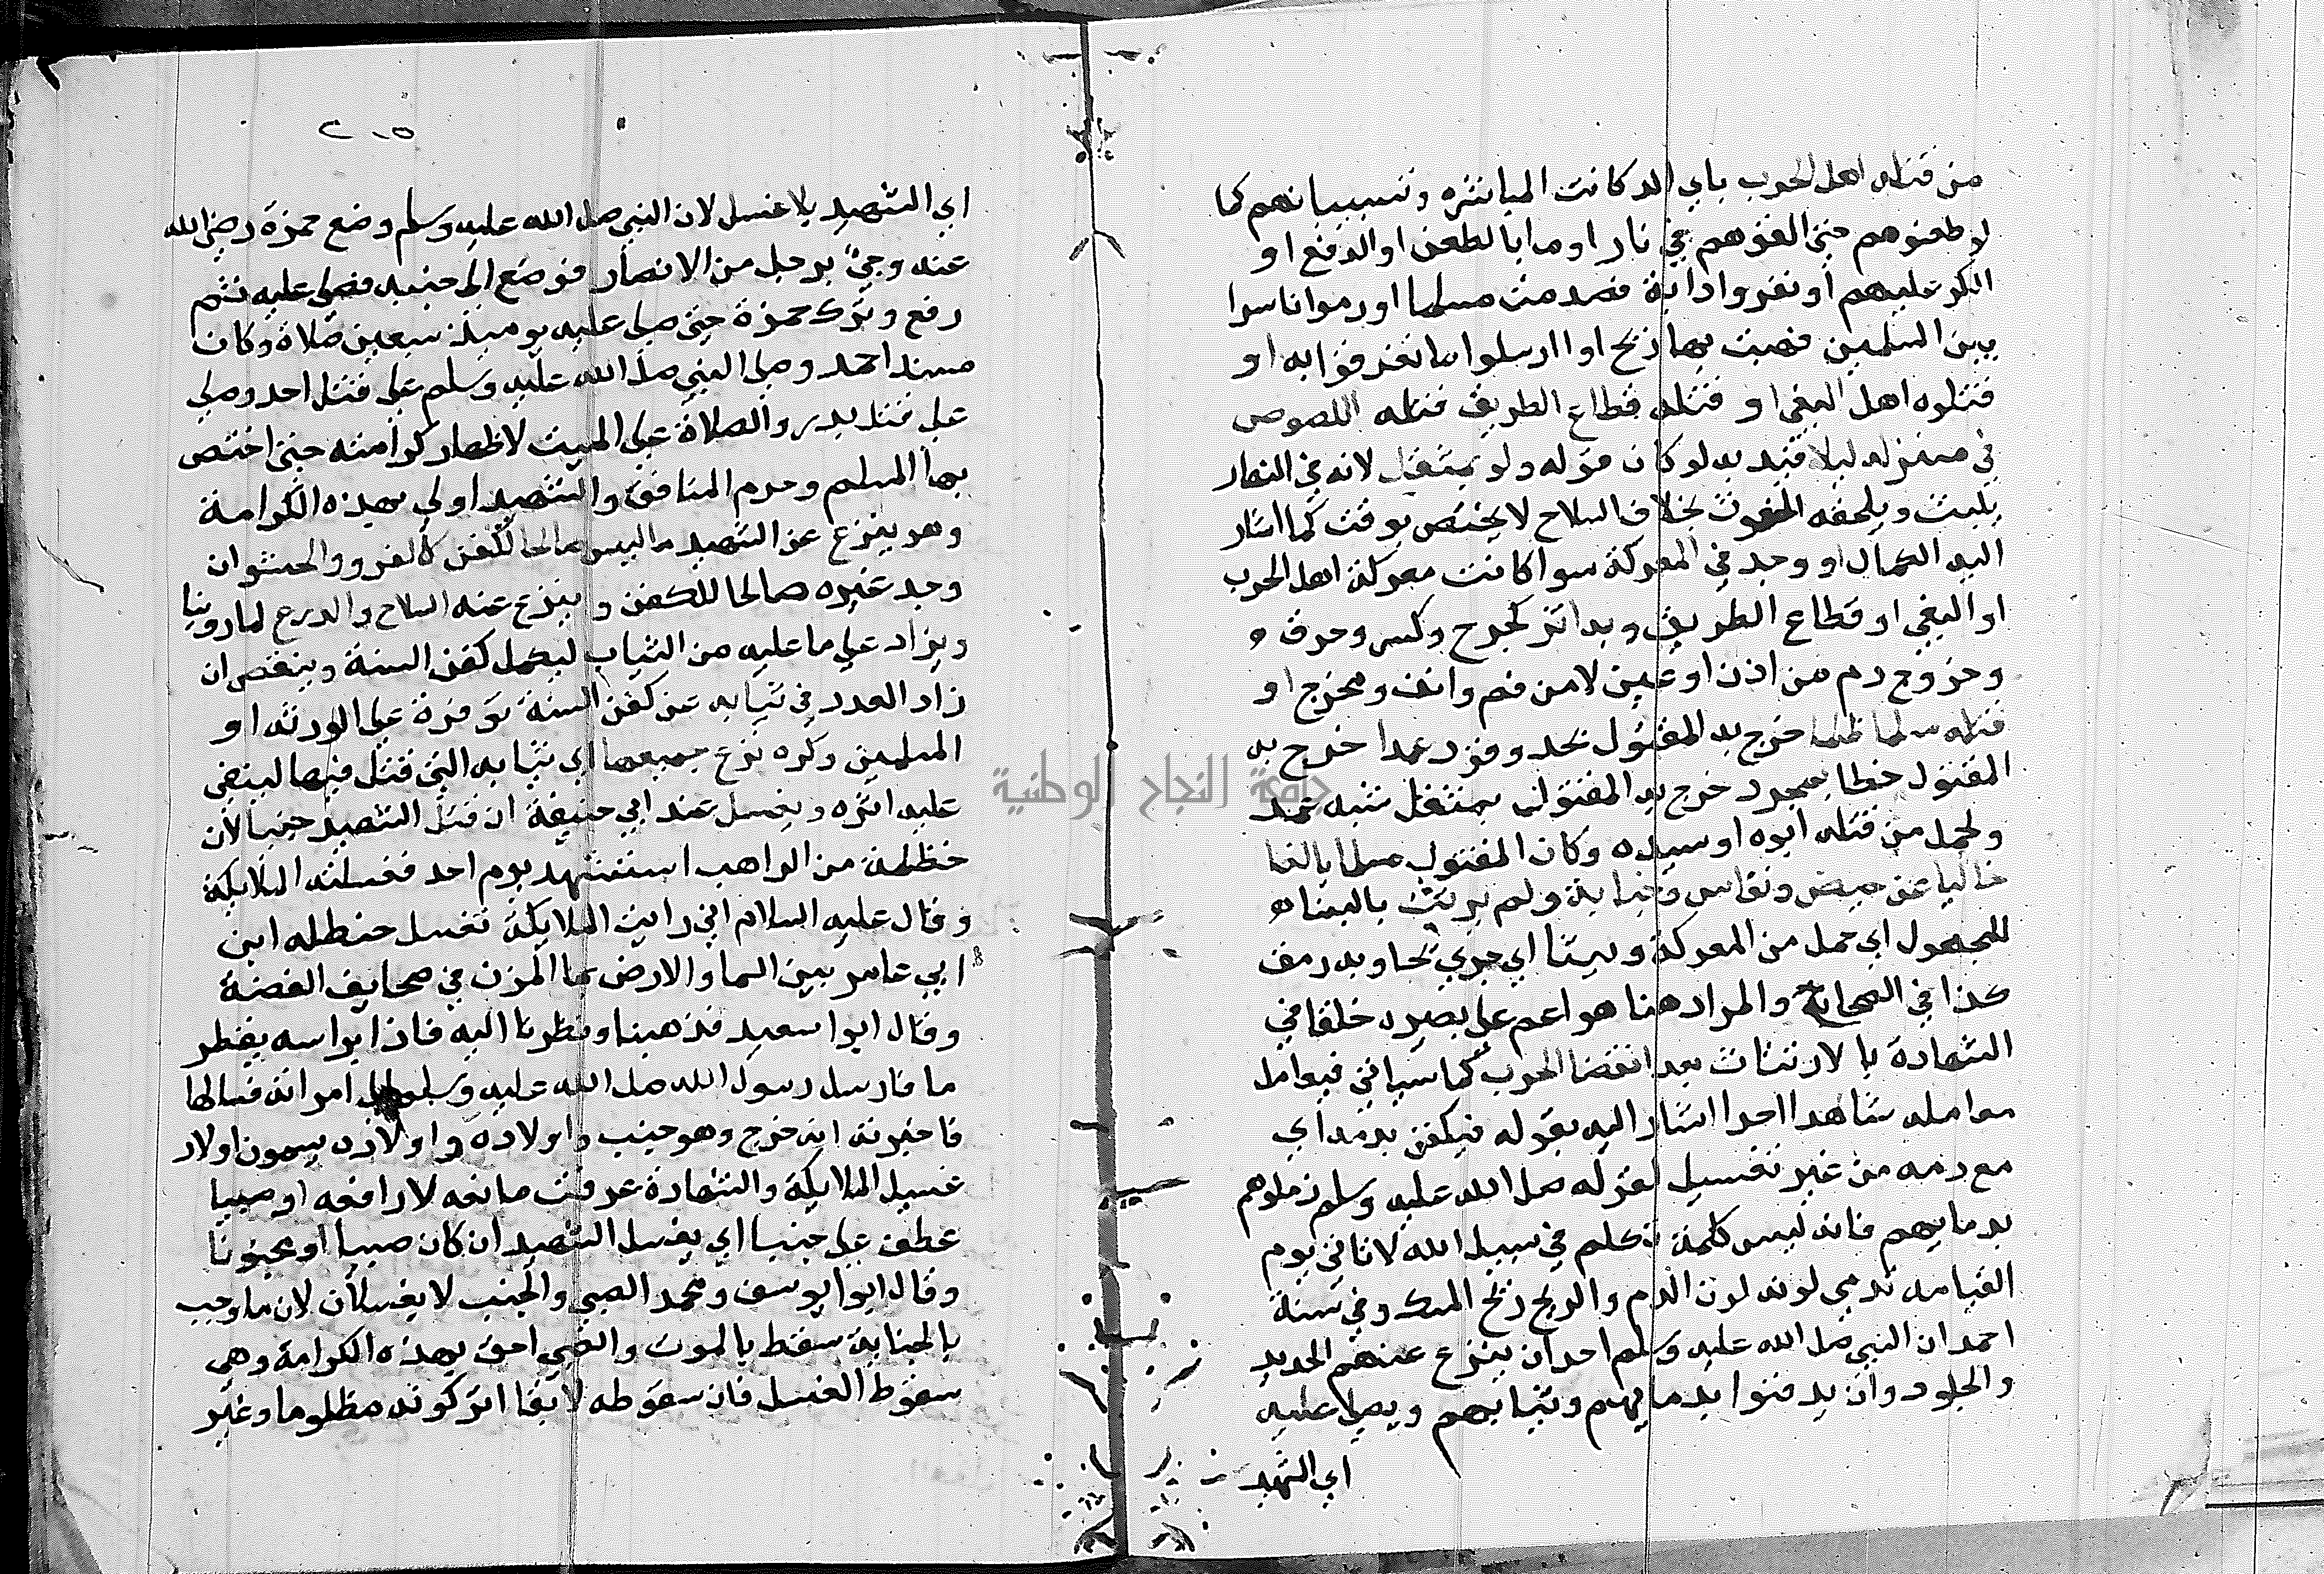 من قتله اهل الحرب باي الة كانت المباشره وتسببا منهم كما
لو طعنوهم حتي القوهم في نار او ما بالطعن او الدفع او
الكر عليهم او نفروا دابة فصدمت مسلما او رموا ناسرا
بين المسلمين فهبت بها ريح او ارسلوا ما فغرقوا به او
قتلوه اهل البغي او قتله قطاع الطريق قتله اللصوص
في منزله ليلا قيد به لو كان قوله ولو بمثقل لانه في النهار
يلبث ويلحقه الغوث بخلاف السلاح لا يختص بوقت كما اشار
اليه الكمال او وجد في المعركة سوا كانت معركة اهل الحرب
او البغي او قطاع الطريق وبه اثر كجرح وكسر وحرق و
وخروج دم من اذن او عين لا من فم وانف ومخرج او
قتله مسلما ظلما خرج به المقتول بحد وقود عمدا خرج به
المقتول خطا بمجرد خرج به المقتول بمثقل شبه عمد
وحمل من قتله ابوه او سيده وكان المقتول مسلما بالغا
خاليا عن حيض ونفاس وجنابة ولم يرتث بالبناه
للمجهول اي حمل من المعركة وريثا اي جريحا وبه رمق
كذا في الصحاح والمراد هنا هو اعم علي يصير خلقا في
الشهادة بالارتثاث بعد انقضا الحرب كما سياتي فيعامل
معاملة شاهدا احدا اشار اليه بقوله فيكفن بدمه اي
مع دمه من غير تغسيل لقوله صل الله عليه وسلم زملوهم
بدمايهم فانه ليس كلمة تكلم في سبيل الله الا تاتي يوم
القيامه تدمي لونه لون الدم والريح ريح المسك وفي سنة
احمد ان النبي صل الله عليه وسلم احد ان ينزع عنهم الحديد
والجلود وان يدفنوا بدمايهم وثيابهم ويصلا عليه
اي الشهيد
٢٠٥
اي الشهيد بلا غسل لان النبي صل الله عليه وسلم وضع حمزة رضي الله
عنه وجيئ برجل من الانصار فوضع الي جنبه فصلي عليه ثم
رفع وترك حمزة حتي صلي عليه يوميذ سبعين صلاة وكان
مسند احمد وصلي النبي صل الله عليه وسلم علي قتل احد وصلي
علي قتل بدر والصلاة علي الميت لاظهار كرامته حتي اختص
بها المسلم وحرم المنافق والشهيد اولي بهذه الكرامة
وهو ينزع عن الشهيد ما ليس صالحا للكفن كالفرو والحشو ان
وجد غيره صالحا للكفن وينزع عنه السلاح والدرع لما روينا
ويزاد علي ما عليه من الثياب ليكمل كفن السنة وينقص ان
زاد العدد في ثيابه عن كفن السنة توفرة علي الورثه او
المسلمين وكره نزع جميعها اي ثيابه التي قتل فيها ليبقي
عليه اثره ويغسل عند ابي حنيفة ان قتل الشهيد جنبا لان
حنظلة من الراهب استشهد يوم احد فغسلته الملايكة
وقال عليه السلام اني رايت الملايكة تغسل حنظله ابن
ابي عامر بين السما والارض بما المزن في صحايف الفضة
وقال ابوا سعيد فذهبنا ونظرنا اليه فاذا براسه يقطر
ما فارسل رسول الله صل الله عليه وسلم الي امراته فسالها
فاخبرته انه خرج وهو جنب واولاده واولاده يسمون اولاد
غسيل الملايكة والشهادة عرفت مانعه لا رافعه او صبيا
عطف علي جنبا اي يغسل الشهيد ان كان صبيا او مجنونا
وقال ابوا يوسف ومحمد الصبي والجنب لا يغسلان لان ما وجب
بالجنابة سقط بالموت والصبي احق بهذه الكرامة وهي
سقوط الغسل فان سقوطه لابقا اثر كونه مظلوما وغير
جامعة النجاح الوطنية